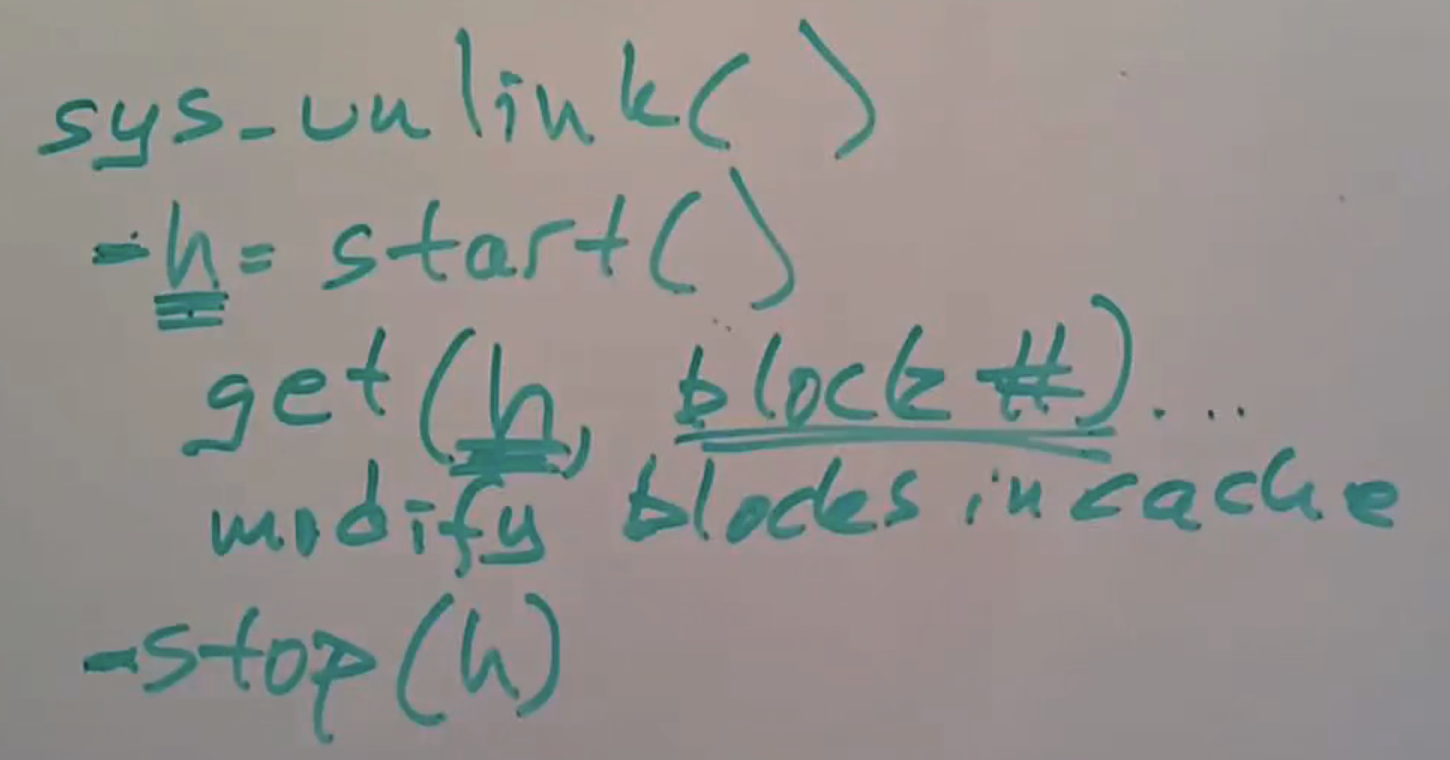 sys_unlink()
- h = start()
get(h, block #)....
modify blocks in cache
- stop(h)